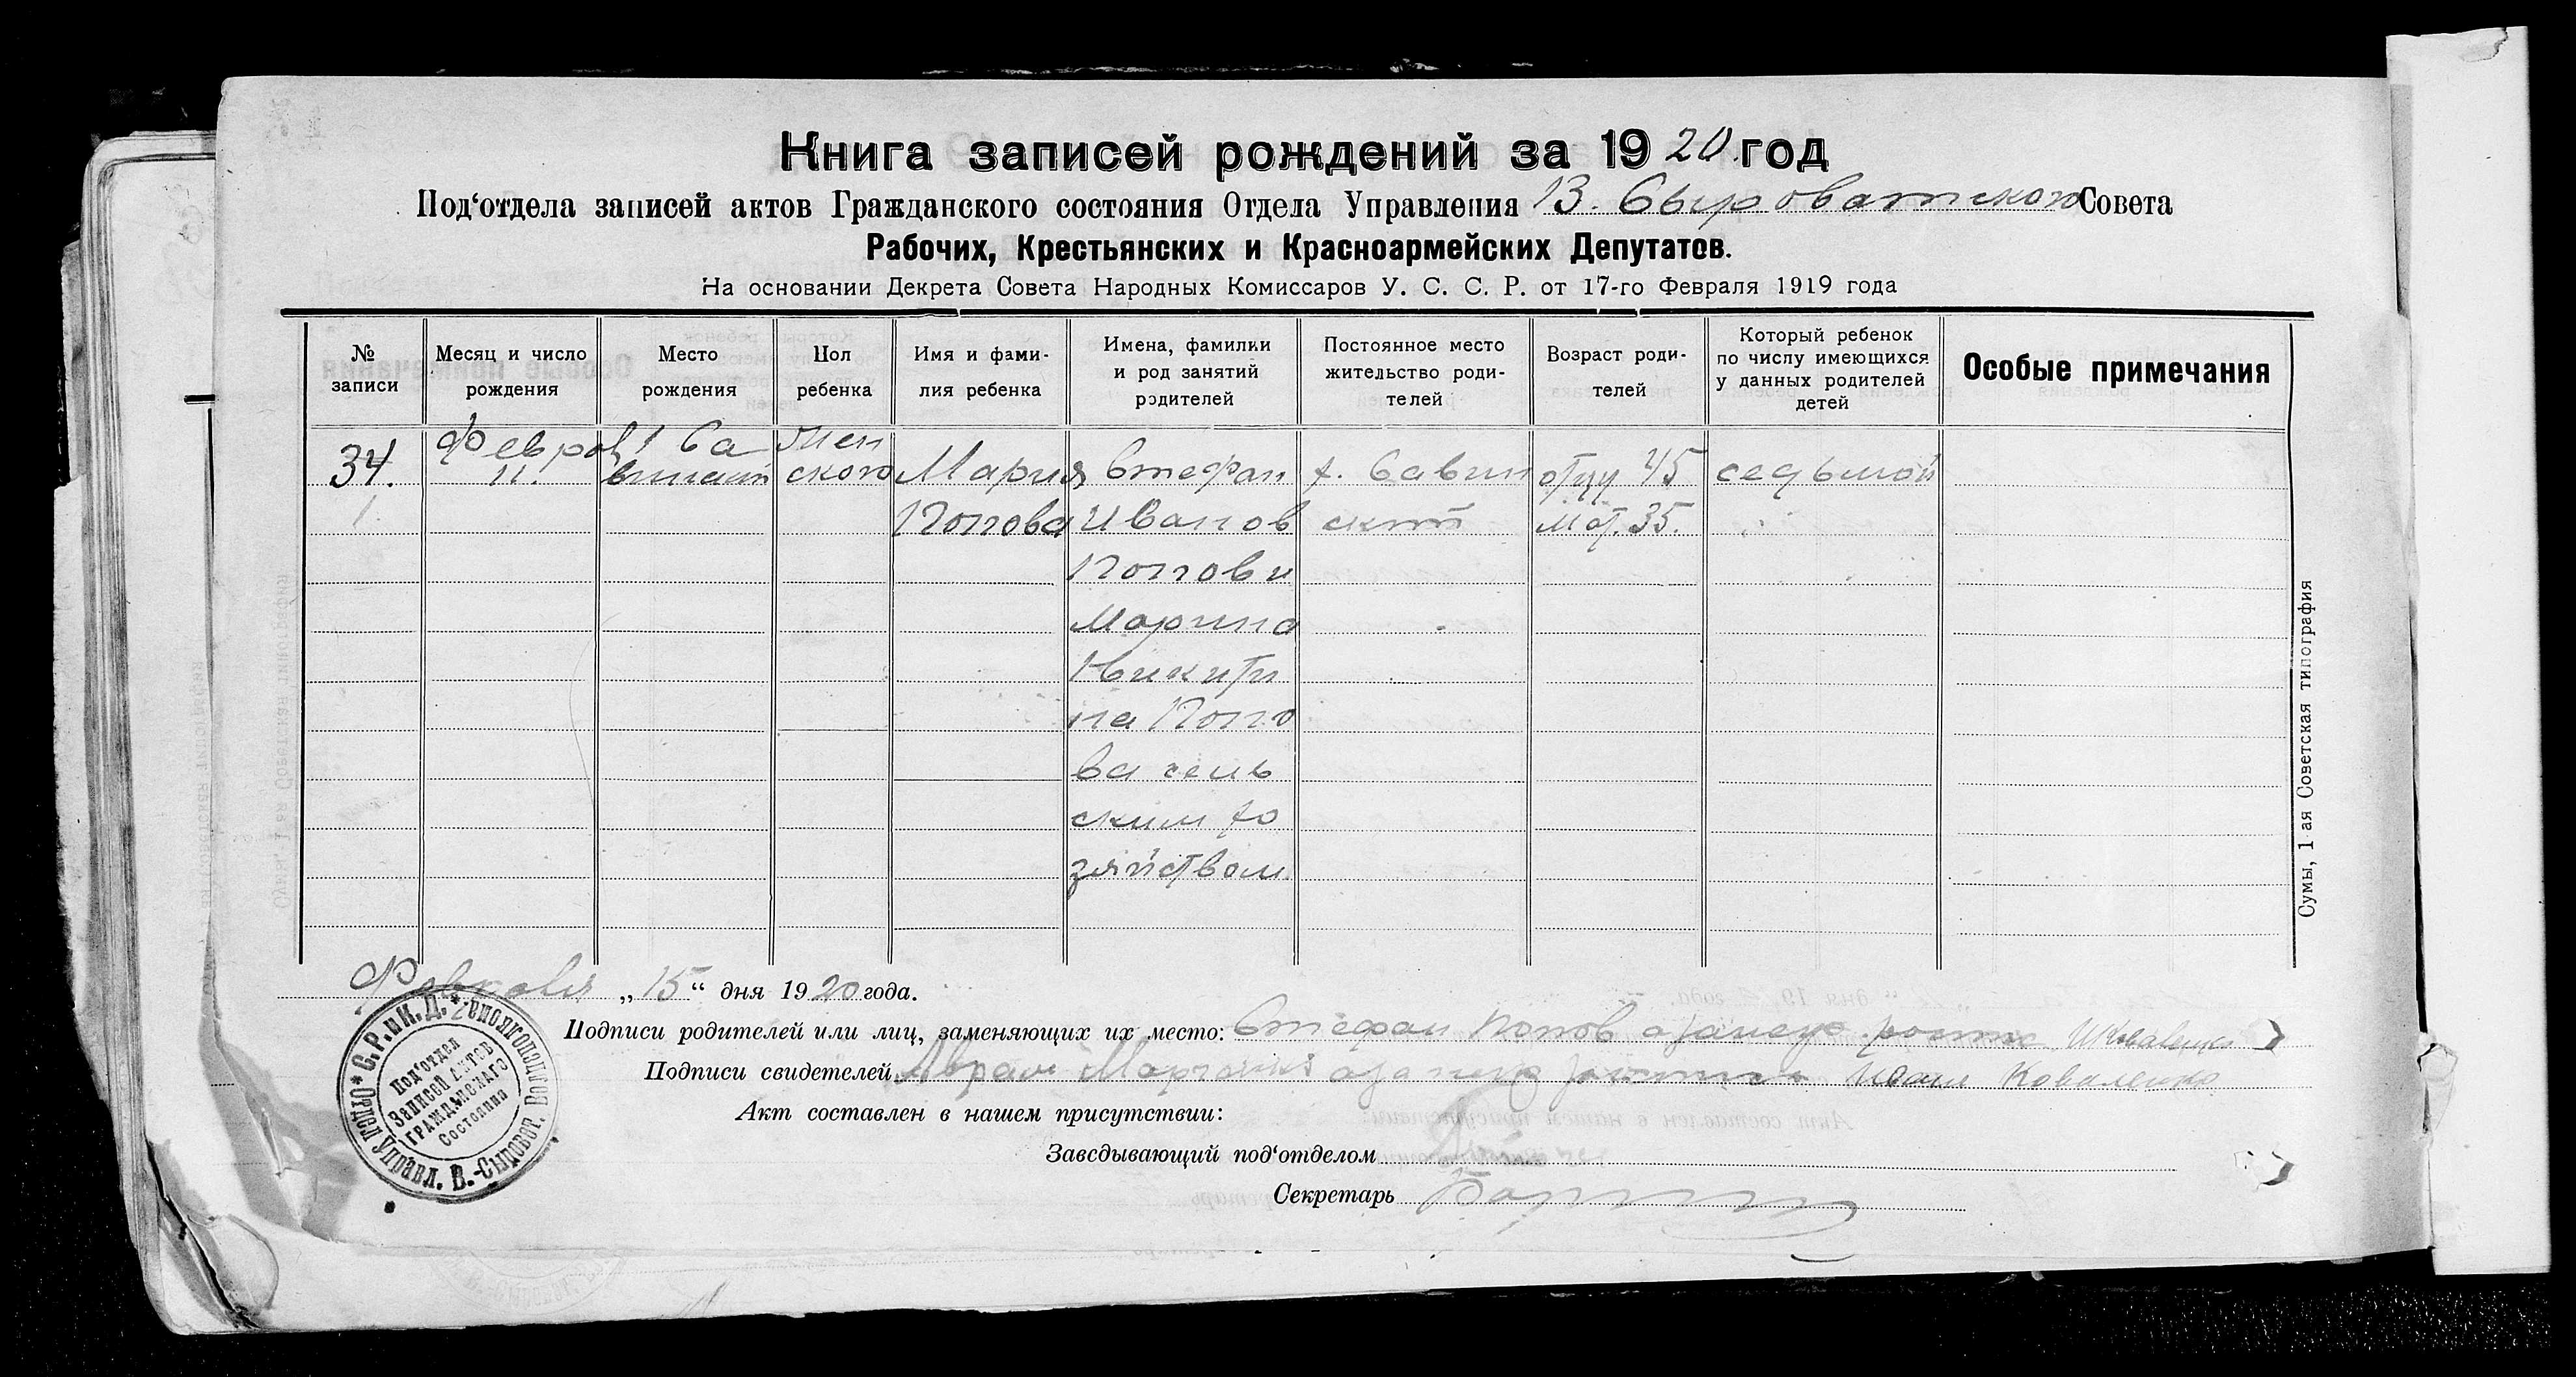 Книга записей рождений за 1920 год
Под‘отдела записей актов Гражданского состояния Отдела Управления В. Сыроватского Совета
Рабочих, Крестьянских и Красноармейских Депутатов.
На основании Декрета Совета Народных Комиссаров У. С. С. Р. от 17-го Февраля 1919 года
№ записи
Месяц и число рождения
Место рождения
Пол ребенка
Имя и фами-
лия ребенка
Имена, фамилии
и род занятий
родителей
Постоянное место
жительство роди-
телей
Возраст роди-
телей
Который ребенок
по числу имеющихся
у данных родителей
детей
Особые примечания
34.
Феврал
11.
Мен
ского
Мария
Попова
Стефан
Иванов
Попов и
Марина
Никити
на Попо
ва сель
ским хо
зяйством
х. Савин
отцу 45
мат. 35.
седьмой
Февраля „15“ дня 1920 года.
Подписи родителей или лиц, заменяющих их место: Стефан Попов
Подписи свидетелей Коваленко
Акт составлен в нашем присутствии:
Заведывающий под‘отделом
Секретарь
Отдел Управл. В.-Сыроват. Волисполкома * С.Р. и К.Д. *
Под‘отдел
Записей Актов
Гражданскаго
Состояния
Сумы, 1-ая Советская типография